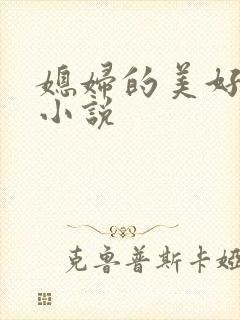 媳婦的美好
小説
克魯普斯卡婭